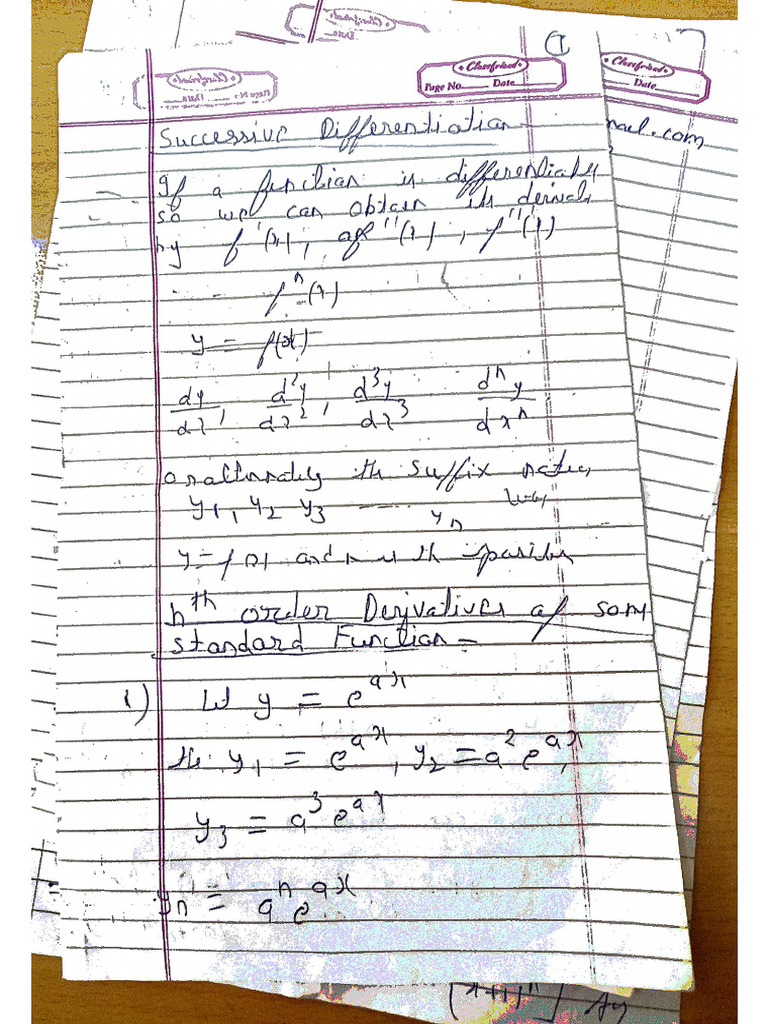 Classfriend
Page No. Date
Classfriend
Date
nael.com
Successive Differentiation
If a function is differentiable
so we can obtain its derivat
by f'(x), of f''(x), f'''(x)
- - fⁿ(x)
y = f(x)
dy/dx, d²y/dx², d³y/dx³ dⁿy/dxⁿ
or alternately the suffix
y₁, y₂ y₃ ---- yₙ
y = f(x) and n is the
nth order Derivatives of som
standard Function -
1) Let y = e^{ax}
the y₁ = e^{ax}, y₂ = a² e^{ax},
y₃ = a³ e^{ax}
yₙ = aⁿ e^{ax}